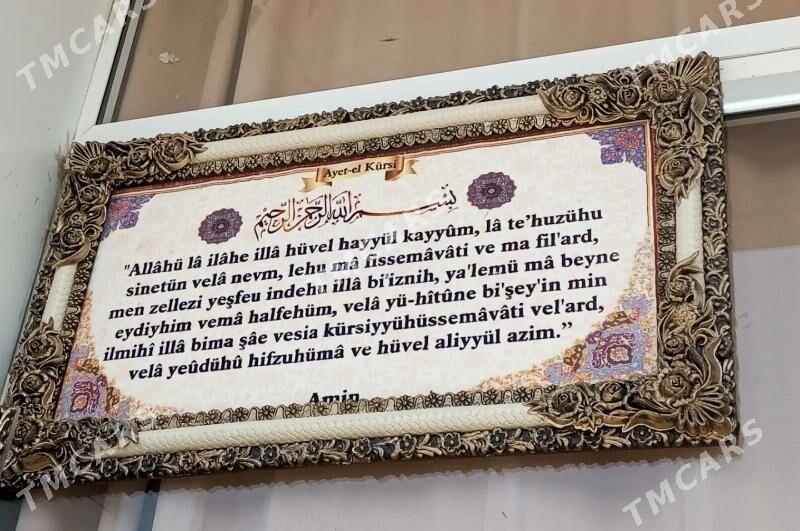 Ayet-el Kürsi
بِسْمِ اللهِ الرَّحْمٰنِ الرَّحِيمِ
"Allâhü lâ ilâhe illâ hüvel hayyül kayyûm, lâ te'huzühu
sinetün velâ nevm, lehu mâ fissemâvâti ve ma fil'ard,
men zellezi yeşfeu indehu illâ bi'iznih, ya'lemü mâ beyne
eydiyhim vemâ halfehüm, velâ yü-hîtûne bi'şey'in min
ilmihî illâ bima şâe vesia kürsiyyühüssemâvâti vel'ard,
velâ yeûdühû hifzuhümâ ve hüvel aliyyül azim.’’
Amin
TMCARS
TMCARS
TMCARS
TMCARS
TMCARS